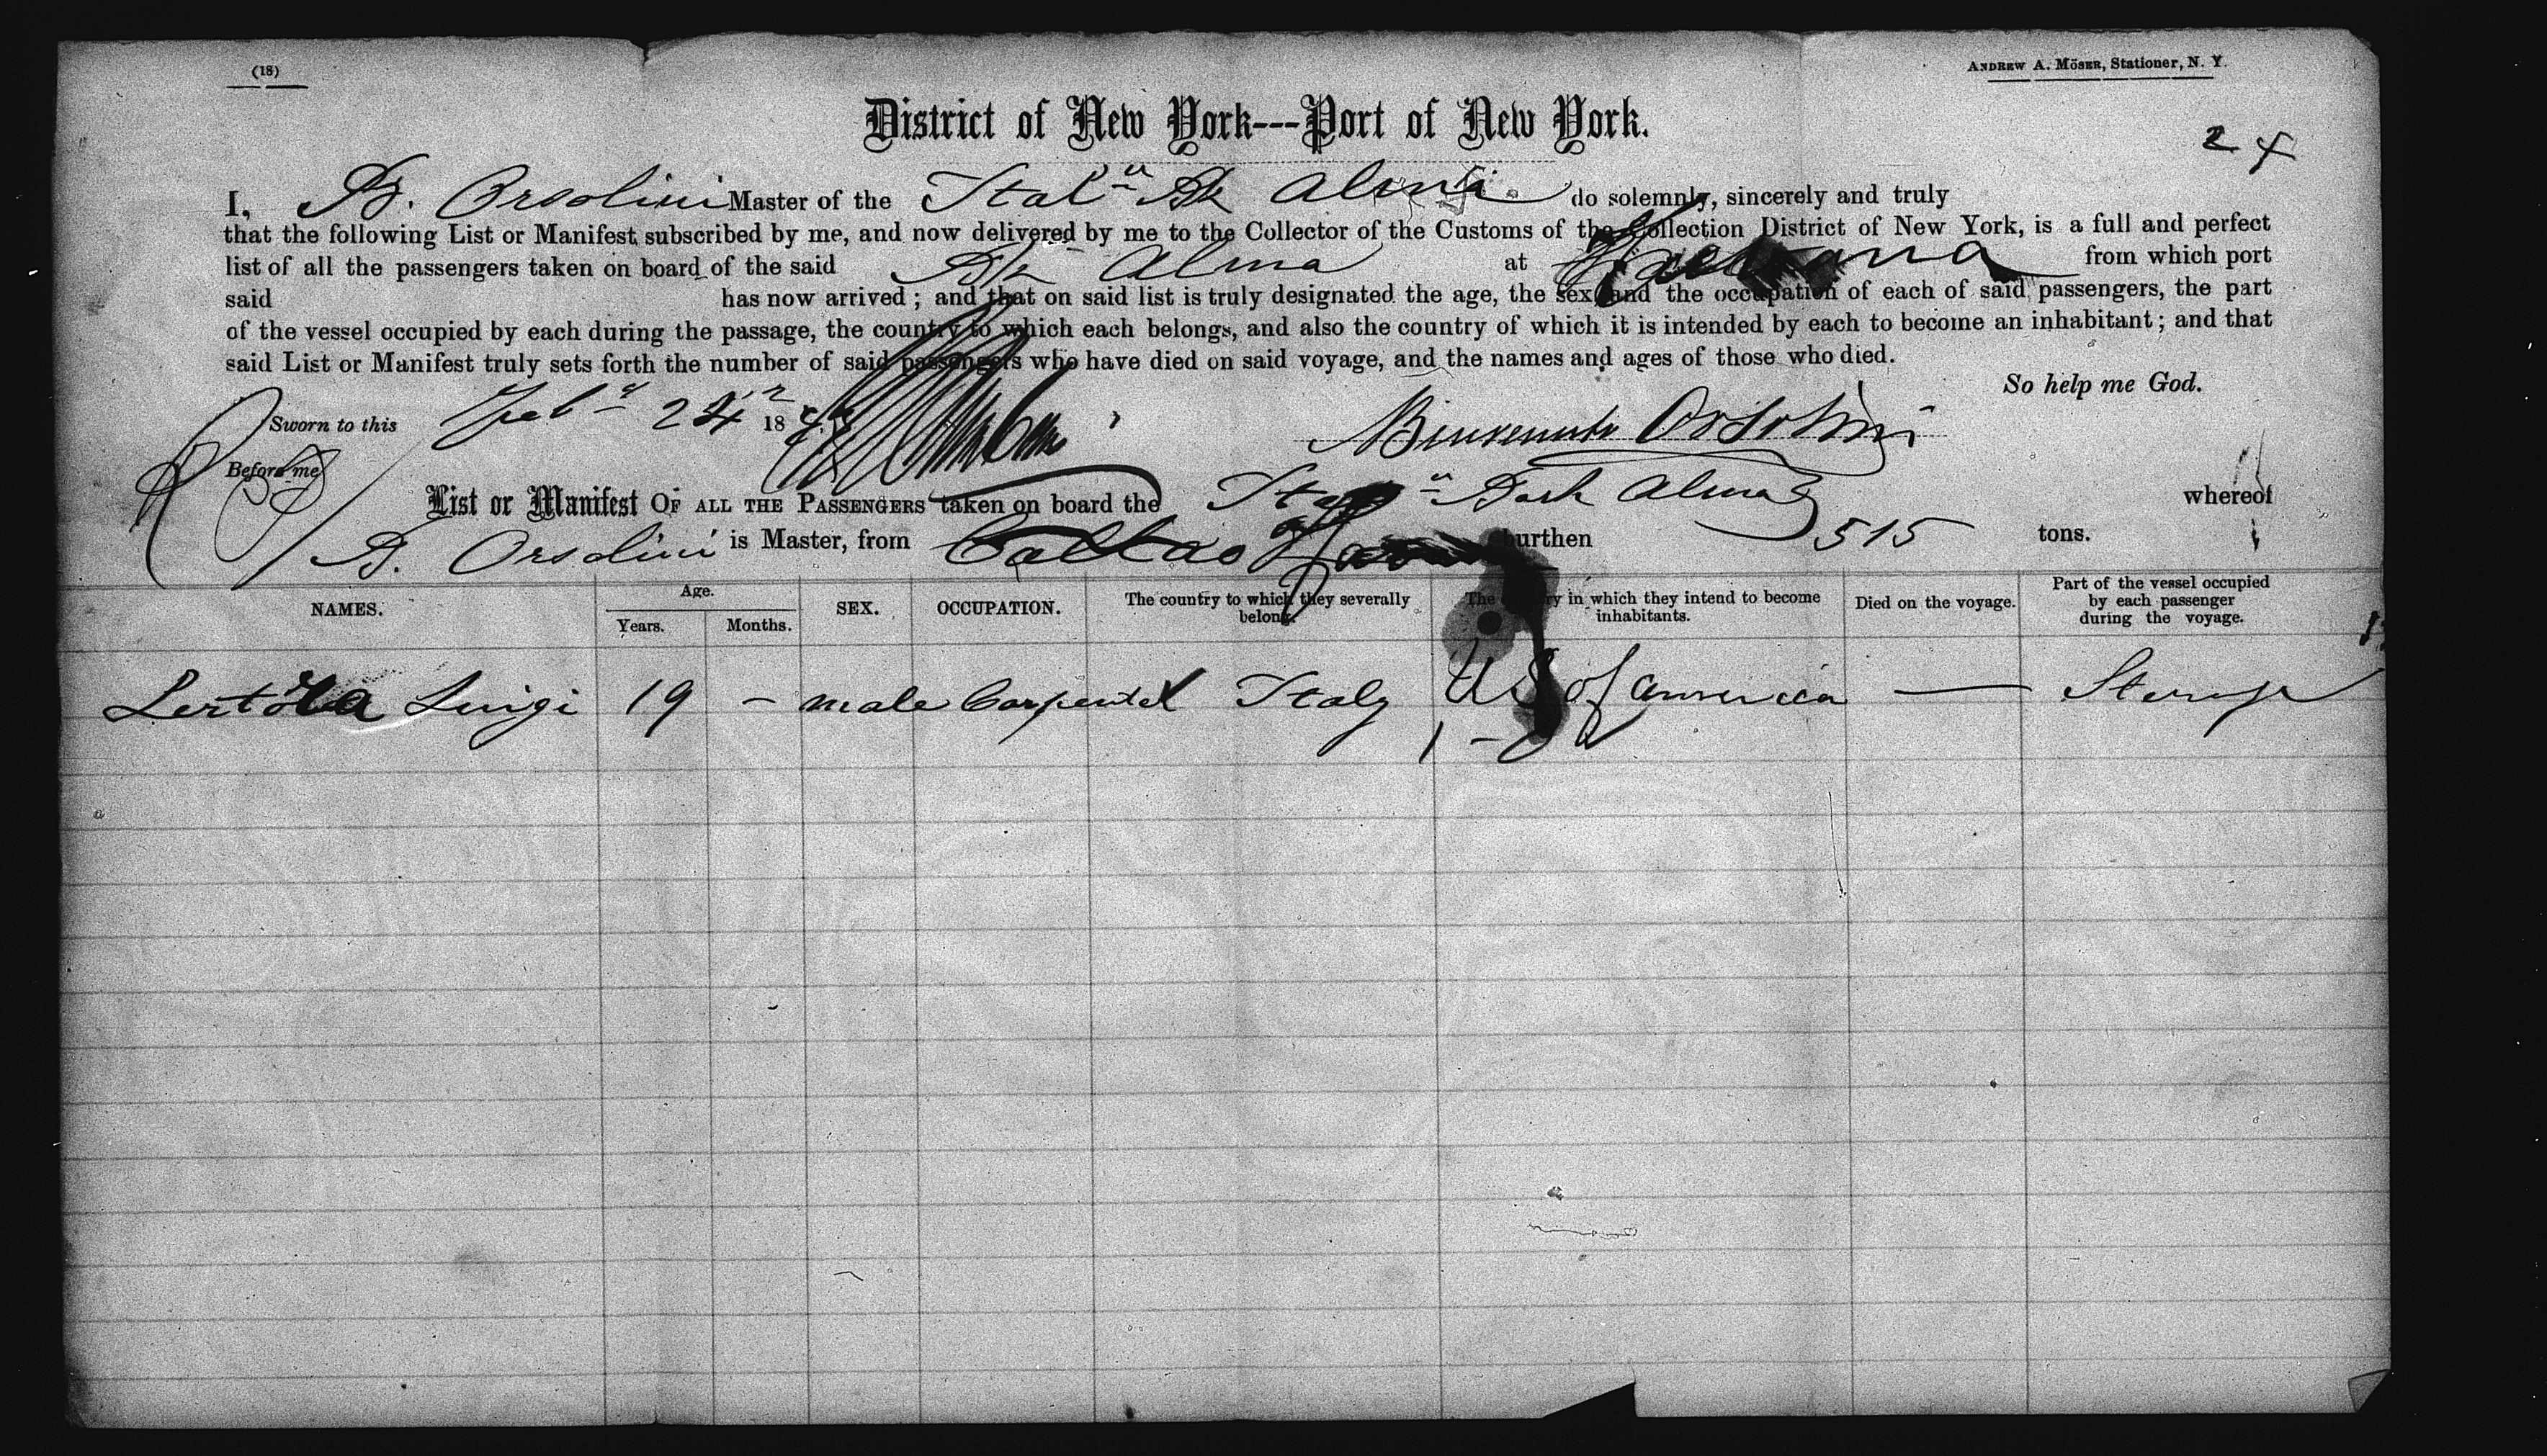 (18)
ANDREW A. MÖSER, Stationer, N. Y.
District of New York---Port of New York.
24
I, B. Orsolini Master of the Ital<sup>n</sup> Bk Alma do solemnly, sincerely and truly
that the following List or Manifest subscribed by me, and now delivered by me to the Collector of the Customs of the Collection District of New York, is a full and perfect
list of all the passengers taken on board of the said Bk Alma at from which port
said has now arrived ; and that on said list is truly designated the age, the sex and the occupation of each of said passengers, the part
of the vessel occupied by each during the passage, the country to which each belongs, and also the country of which it is intended by each to become an inhabitant ; and that
said List or Manifest truly sets forth the number of said passengers who have died on said voyage, and the names and ages of those who died.
So help me God.
Sworn to this Feb 24 18
Benvenuto Orsolini
Before me
List or Manifest OF ALL THE PASSENGERS taken on board the Bark Alma whereof
B. Orsolini is Master, from Callao burthen 515 tons.
NAMES. Age. Years. Months. SEX. OCCUPATION. The country to which they severally belong. The country in which they intend to become inhabitants. Died on the voyage. Part of the vessel occupied by each passenger during the voyage.
Lertola Luigi 19 – male Carpenter Italy US of America — Sterage